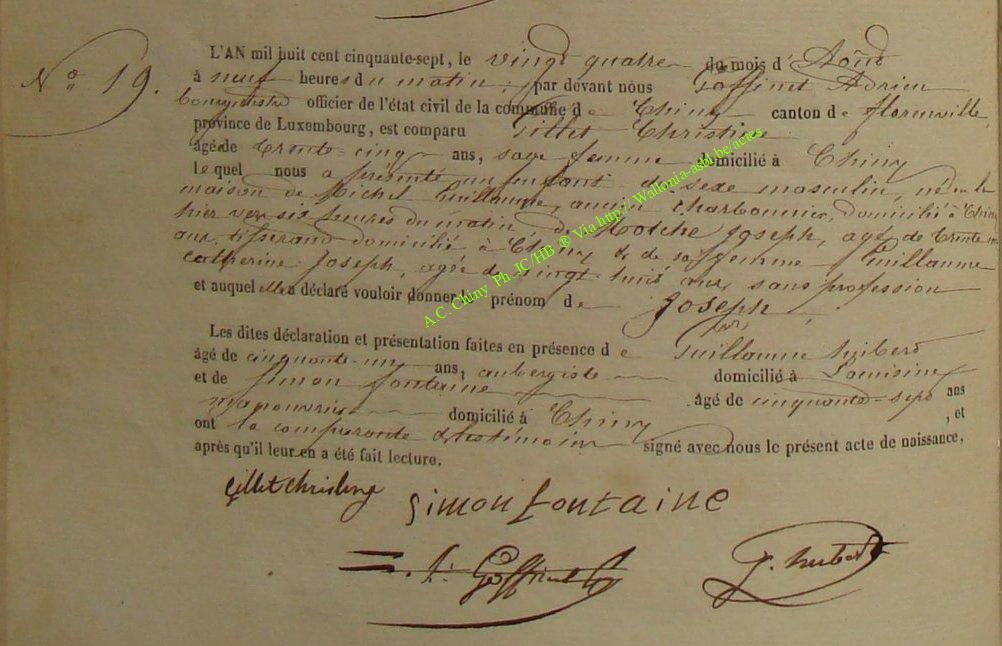 N° 19.
L'AN mil huit cent cinquante-sept, le vingt quatre du mois d'Août
à neuf heures du matin, par devant nous Goffinet Adrien
bourgmestre officier de l'état civil de la commune de Chiny canton de florenville,
province de Luxembourg, est comparu Gillet Christine
âgé de trente-cinq ans, sage femme domicilié à Chiny
lequel nous a présenté un enfant de sexe masculin, né en la
maison de Michel Guillaume, ancien charbonnier, domicilié à Chiny
hier vers six heures du matin, de Joseph, agé de trente
ans, tisserand domicilié à Chiny & de sa femme Guillaume
Catherine Joseph, agée de vingt huit ans sans profession
et auquel elle a déclaré vouloir donner le prénom de Joseph
Les dites déclaration et présentation faites en présence de Guillaume hubert
âgé de cinquante-un ans, aubergiste domicilié à
et de Simon fontaine âgé de cinquante-sept ans
manouvrier domicilié à Chiny, et
ont la comparante & les témoins signé avec nous le présent acte de naissance,
après qu'il leur en a été fait lecture.
gillet christine
Simon fontaine
Goffinet
g. hubert
A.C. Chiny Ph. JC/HB ® Via http://Wallonia-asbl.be/actes